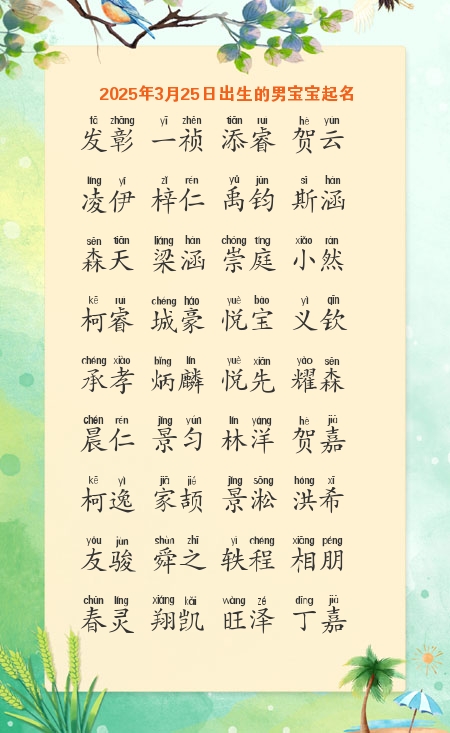 2025年3月25日出生的男宝宝起名
fā zhāng yī zhēn tiān ruì hè yún
发彰 一祯 添睿 贺云
líng yī zǐ rén yǔ jūn sī hán
凌伊 梓仁 禹钧 斯涵
sēn tiān liáng hán chóng tíng xiǎo rán
森天 梁涵 崇庭 小然
kē ruì chéng háo yuè bǎo yì qīn
柯睿 城豪 悦宝 义钦
chéng xiào bǐng lín yuè xiān yào sēn
承孝 炳麟 悦先 耀森
chén rén jǐng yún lín yáng hè jiā
晨仁 景匀 林洋 贺嘉
kē yì jiā jié jǐng sōng hóng xī
柯逸 家颉 景淞 洪希
yǒu jùn shùn zhī yì chéng xiāng péng
友骏 舜之 轶程 相朋
chūn líng xiáng kǎi wàng zé dīng jiā
春灵 翔凯 旺泽 丁嘉